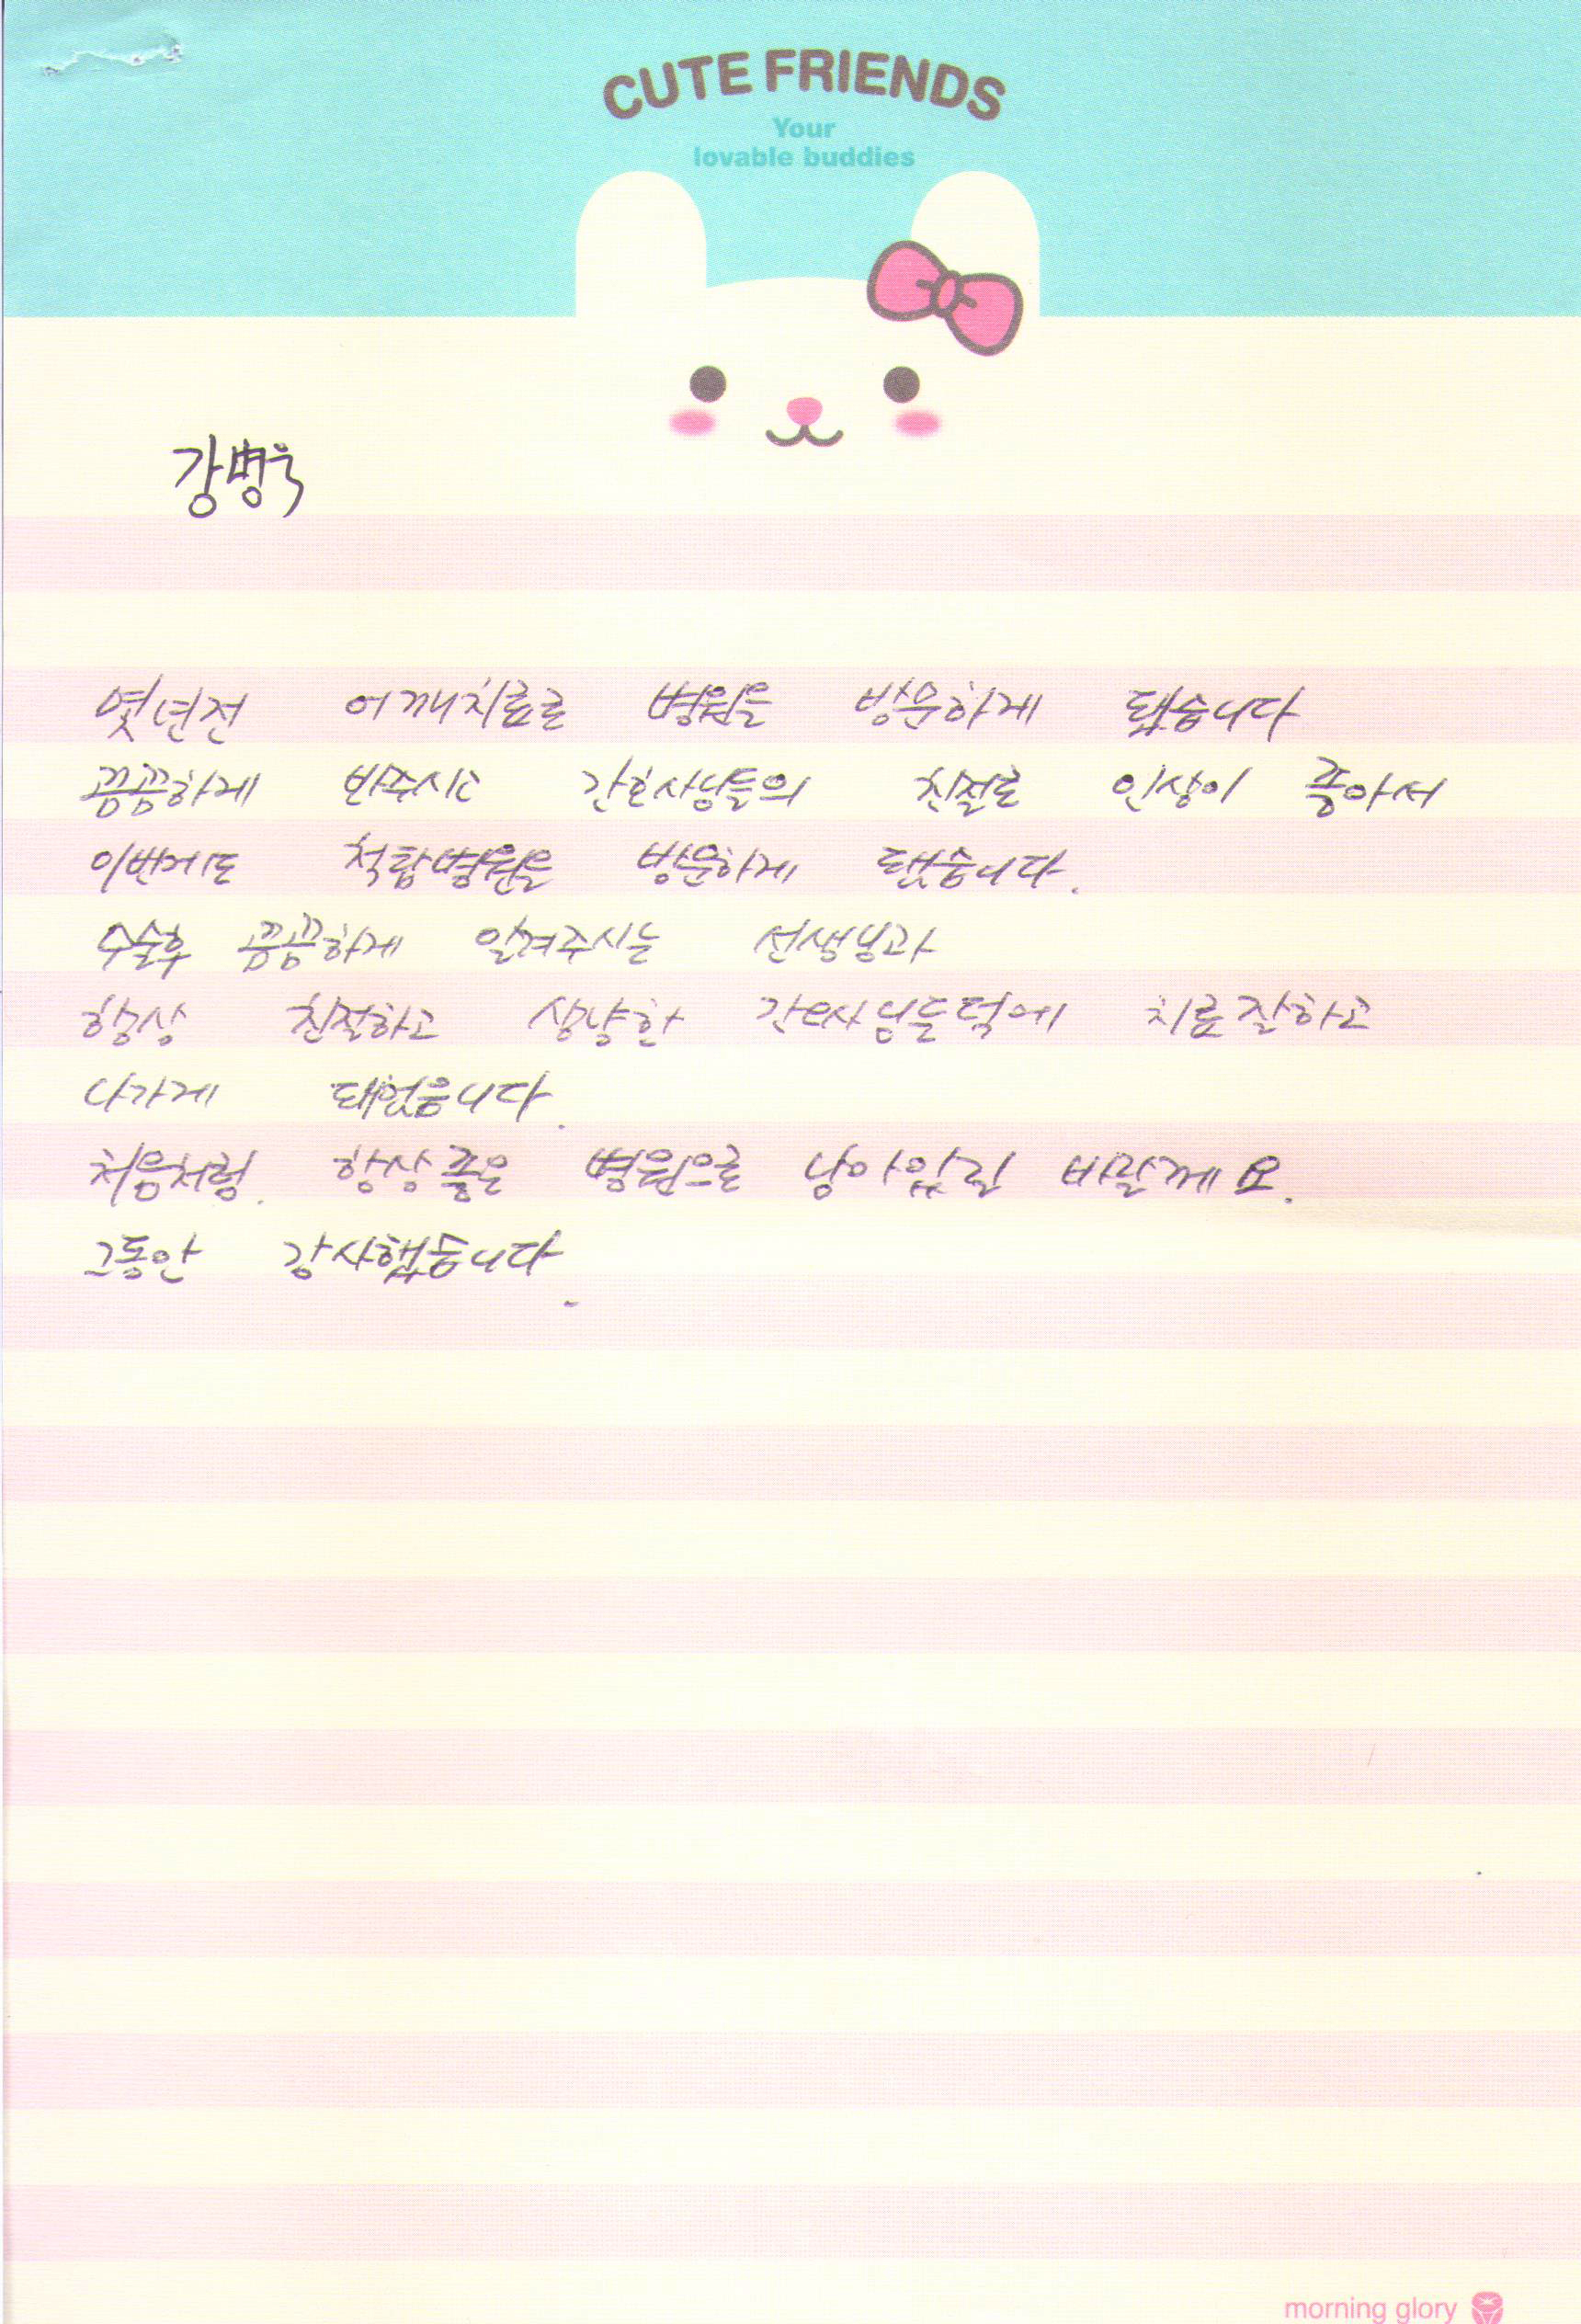 CUTE FRIENDS
Your
lovable buddies
강병우
몇년전 어깨치료로 병원을 방문하게 됐습니다
꼼꼼하게 봐주시고 간호사님들의 친절로 인상이 좋아서
이번에도 척탑병원을 방문하게 됐습니다.
수술후 꼼꼼하게 알려주시는 선생님과
항상 친절하고 상냥한 간호사님들덕에 치료잘하고
나가게 돼었읍니다.
처음처럼. 항상좋은 병원으로 남아있길 바랄께요.
그동안 감사했습니다.
morning glory